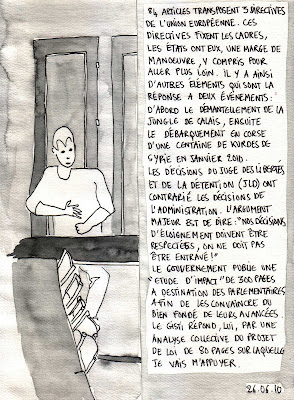 84 ARTICLES TRANSPOSENT 3 DIRECTIVES
DE L'UNION EUROPÉENNE. CES
DIRECTIVES FIXENT LES CADRES,
LES ÉTATS ONT EUX, UNE MARGE DE
MANOEUVRE, Y COMPRIS POUR
ALLER PLUS LOIN. IL Y A AINSI
D'AUTRES ÉLÉMENTS QUI SONT LA
RÉPONSE A DEUX ÉVÉNEMENTS:
D'ABORD LE DÉMANTELLEMENT DE LA
JUNGLE DE CALAIS, ENSUITE
LE DÉBARQUEMENT EN CORSE
D'UNE CENTAINE DE KURDES DE
SYRIE EN JANVIER 2010.
LES DÉCISIONS DU JUGE DES LIBERTÉS
ET DE LA DÉTENTION (JLD) ONT
CONTRARIÉ LES DÉCISIONS DE
L'ADMINISTRATION. L'ARGUMENT
MAJEUR EST DE DIRE: "NOS DÉCISIONS
D'ÉLOIGNEMENT DOIVENT ÊTRE
RESPECTÉES, ON NE DOIT PAS
ÊTRE ENTRAVÉ!"
LE GOUVERNEMENT PUBLIE UNE
"ETUDE D'IMPACT" DE 300 PAGES
A DESTINATION DES PARLEMENTAIRES
AFIN DE LES CONVAINCRE DU
BIEN FONDÉ DE LEURS AVANCÉES
LE GISTI RÉPOND, LUI, PAR UNE
ANALYSE COLLECTIVE DU PROJET
DE LOI DE 80 PAGES SUR LAQUELLE
JE VAIS M'APPUYER.
26.06.10